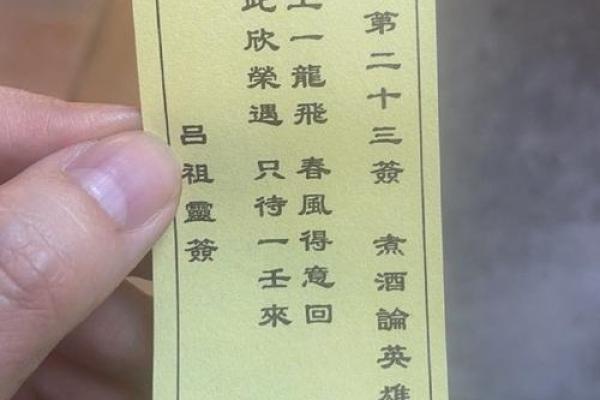 第二十三簽 煮酒論英雄
上一龍飛 春風得意回
此欣榮遇 只待一壬來
呂祖靈簽